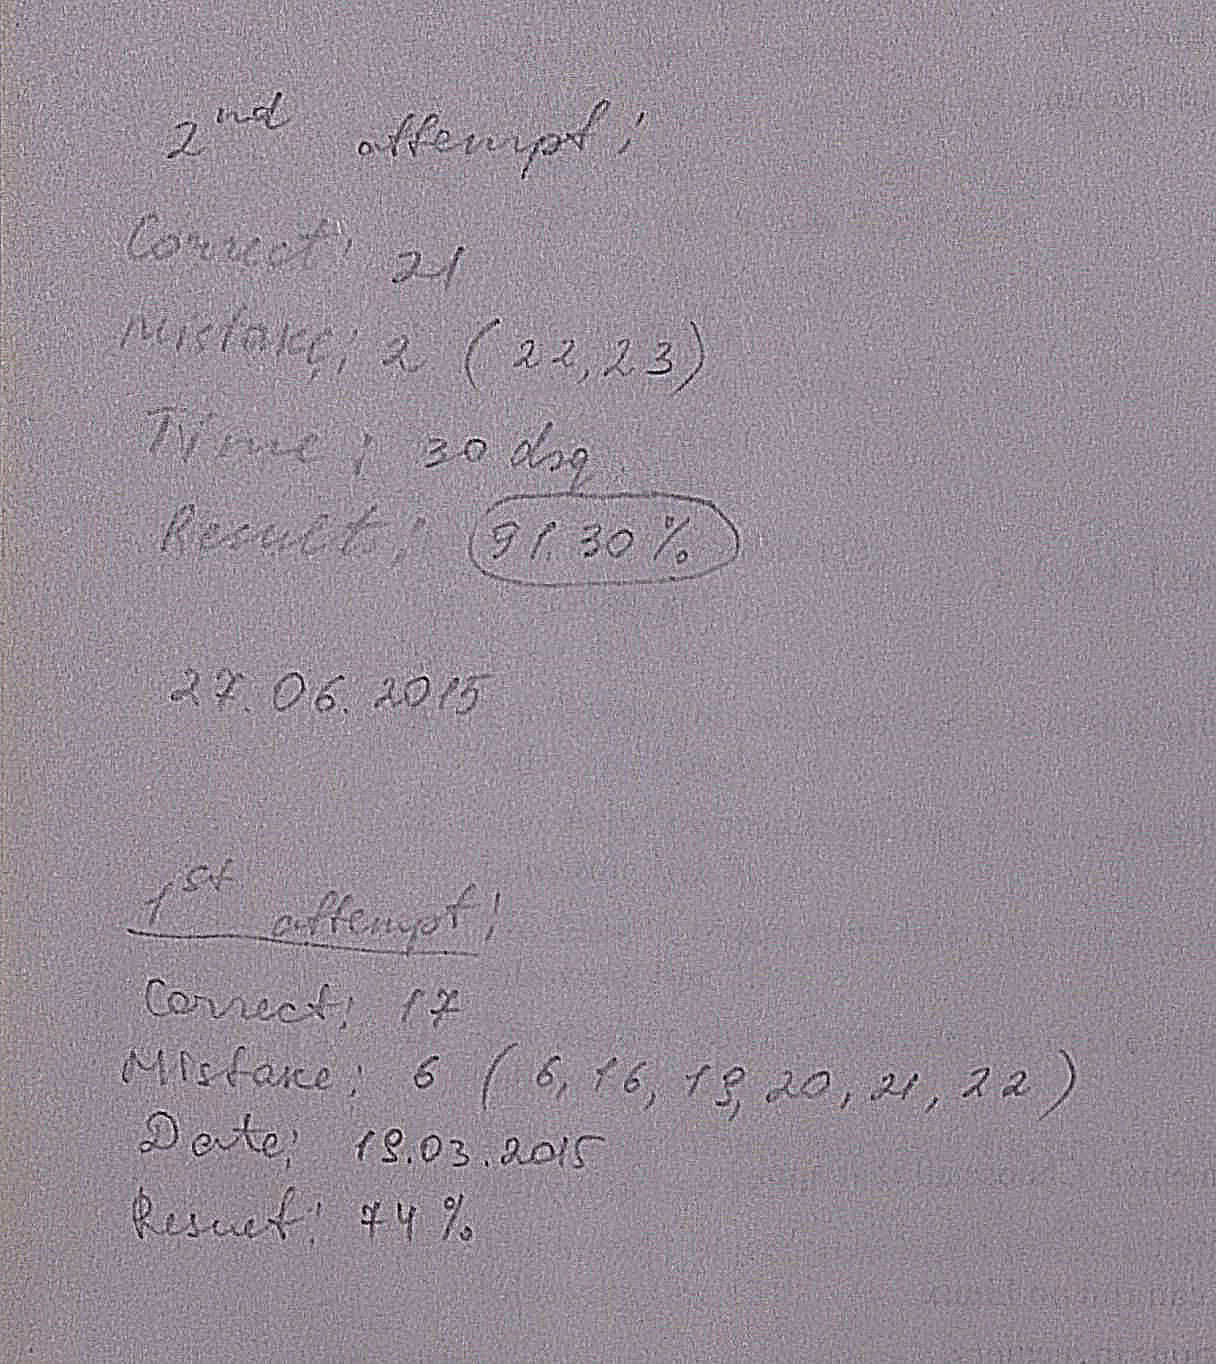 2nd attempt:
Correct: 21
Mistake: 2 (22, 23)
Time: 30 dəq
Result: 91.30%
27.06.2015
1st attempt:
Correct: 17
Mistake: 6 (6, 16, 19, 20, 21, 22)
Date: 19.03.2015
Result: 74%